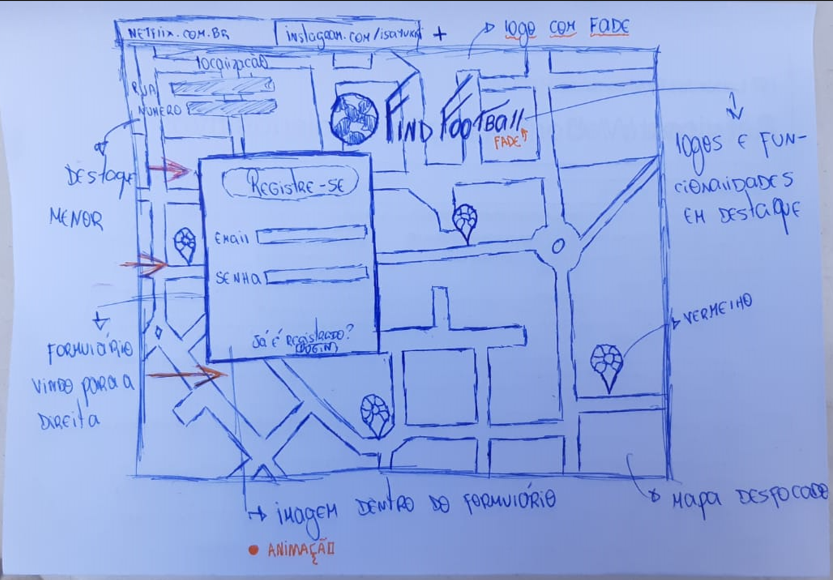 NETFLIX.COM.BR
instagram.com/isaturra +
logo com FADE
localização
RUA
NÚMERO
FIND FOOTBALL
FADE
logos e FUN-
cionalidades
EM DESTAQUE
DESTAQUE
MENOR
REGISTRE-SE
EMAIL
SENHA
JÁ É REGISTRADO?
(LOGIN)
VERMELHO
FORMULÁRIO
VINDO PARA A
DIREITA
IMAGEM DENTRO DO FORMULÁRIO
MAPA DESFOCADO
ANIMAÇÃO